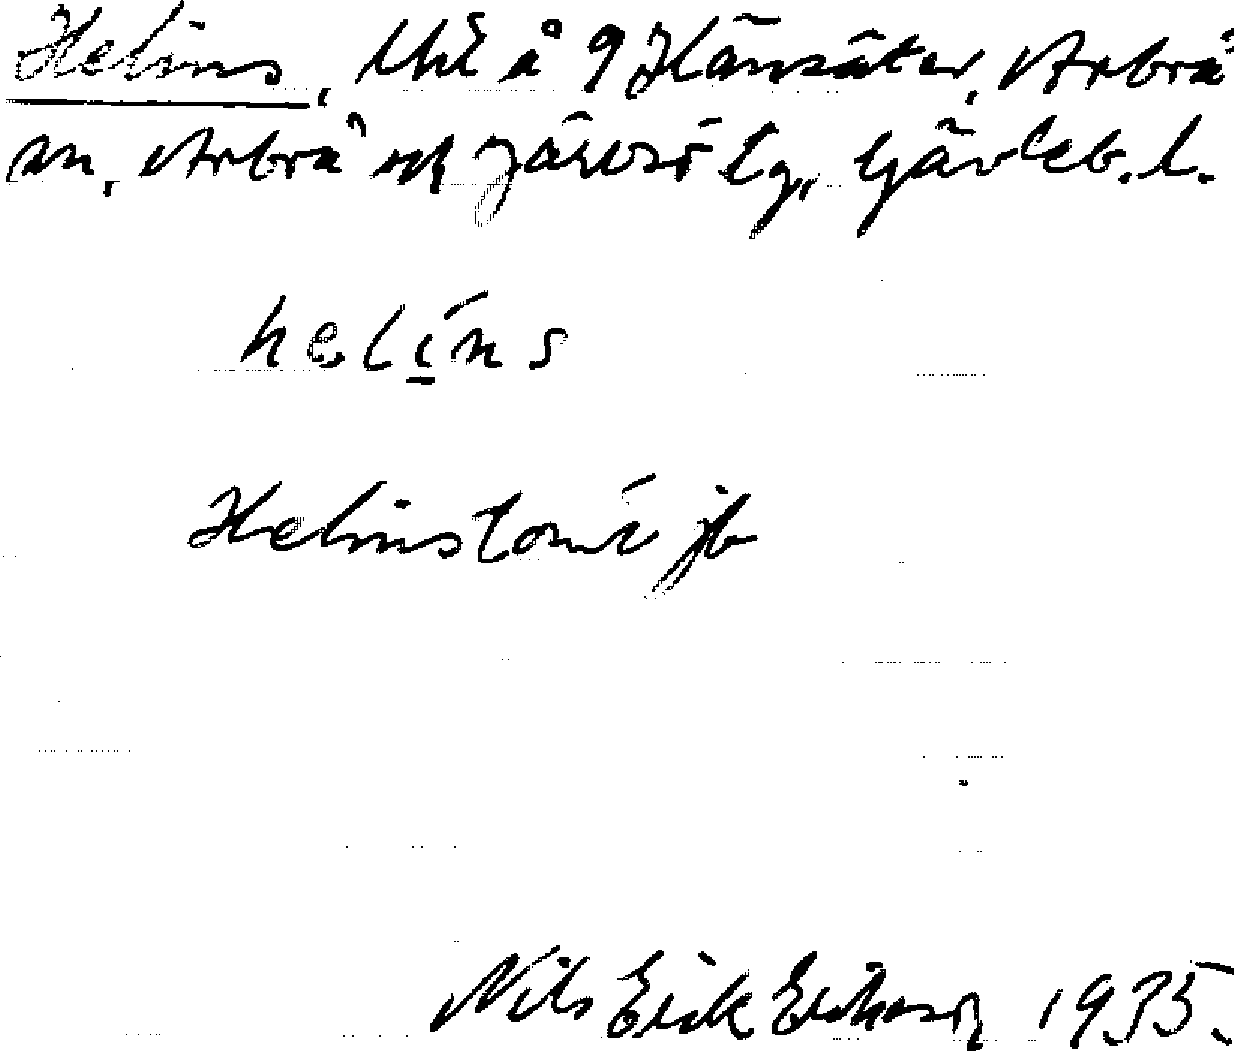 Helins, lht å 9 Hänsäter, Arbrå
sn, Arbrå och Järvsö tg, Gävleb. l.
helíns
Helinstomt jb
Nils Erik Erikson 1935.